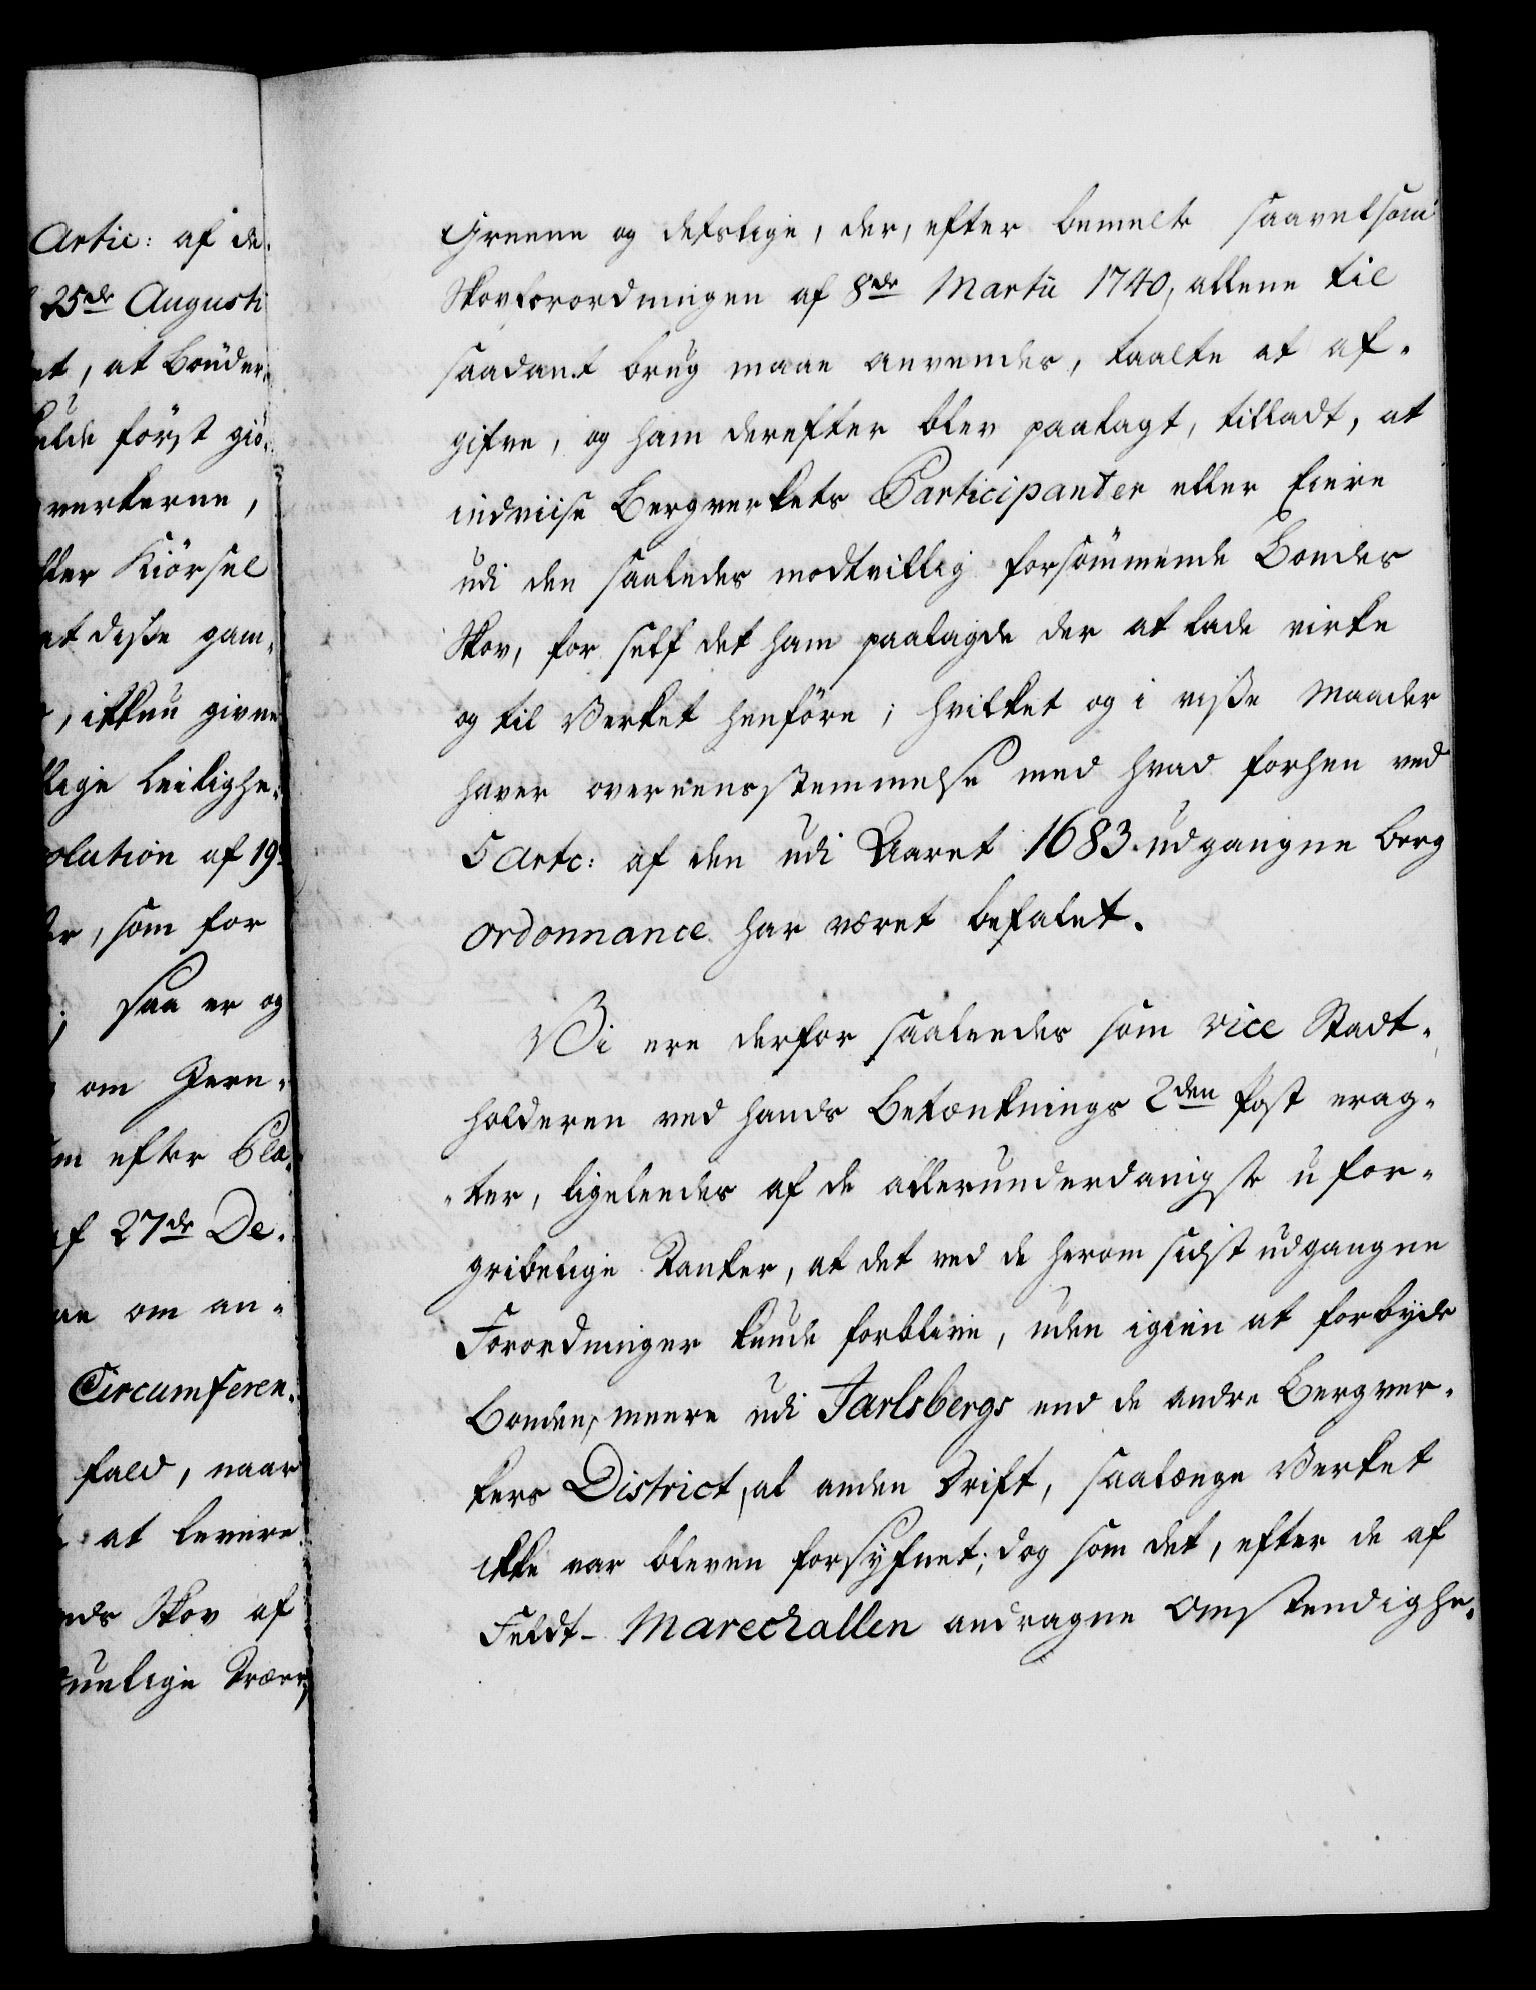 Artic: af de
25de Augusti
at, at Bönder,
först giö-
verkerne,
Kiörsel
at disse gam-
, ikkun givne
lige Leilighe-
olution af 19
, som for
saa er og
om Jern-
efter Pla-
af 27de De-
om an-
Circumferen-
fald, naar
at levere
Skov af
Træer,
Greene og deslige, der, efter bemelte saavelsom
Skovforordningen af 8de Martii 1740, allene til
saadant brug maae anvendes, taalte at af-
gifve, og ham derefter blev paalagt, tilladt, at
indviise Bergverkets Participanter eller Eiere
udi den saaledes modtvillig forsömmende Bondes
Skov, for self det ham paalagde der at lade virke
og til Verket henföre; hvilket og i visse Maader
haver overeensstemmelse med hvad forhen ved
5 Artc: af den udi Aaret 1683. udgangne Berg
Ordonnance har været befalet.
Vi ere derfor saaleedes som Vice Stadt-
holderen ved hands Betænknings 2den Post erag-
ter, ligeleedes af de allerunderdanigste ufor-
gribelige Tanker, at det ved de herom sidst udgangne
Forordninger kunde forblive, uden igien at forbyde
Bonden, meere udi Jarlsbergs end de andre Bergver-
kers District, al anden Drift, saalænge Verket
ikke var bleven forsyfnet; dog som det, efter de af
Feldt-Marechallen andragne Omstendighe-